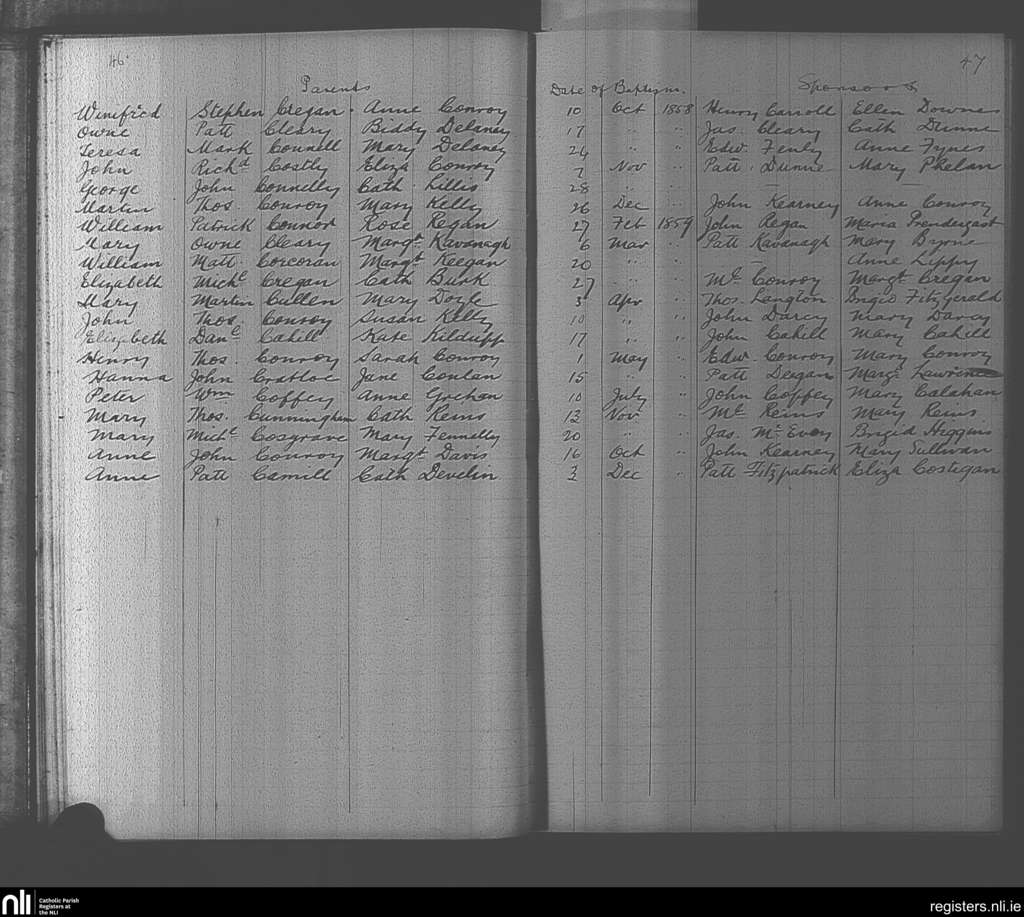 46 47
Parents Date of Baptism. Sponsors
Winifrid Stephen Cregan Anne Conroy 10 Oct 1858 Henry Carroll Ellen Downes
Owne Patt Cleary Biddy Delaney 17 " " Jas. Cleary Cath Dunne
Teresa Mark Connell Mary Delaney 24 " " Edw. Fenly Anne Fynes
John Richd Costly Eliza Conroy 7 Nov " Patt. Dunne Mary Phelan
George John Connelly Cath Lillis 28 " " — —
Martin Thos. Conroy Mary Kelly 26 Dec " John Kearney Anne Conroy
William Patrick Connor Rose Regan 27 Feb 1859 John Regan Maria Prendergast
Mary Owne Cleary Margt. Kavanagh 6 Mar " Patt Kavanagh Mary Byrne
William Matt. Corcoran Margt Keegan 20 " " — Anne Lippy
Elizabeth Michl Cregan Cath Burk 27 " " Ml Conroy Margt Cregan
Mary Martin Cullen Mary Doyle 3 Apr " Thos. Langton Brigid Fitzgerald
John Thos. Conroy Susan Kelly 10 " " John Darcy Mary Darcy
Elizabeth Danl Cahill Kate Kilduff 17 " " John Cahill Mary Cahill
Henry Thos. Conroy Sarah Conroy 1 May " Edw Conroy Mary Conroy
Hanna John Jane Conlan 15 " " Patt Deegan Margt Lawrence
Peter Wm Coffey Anne Grehan 10 July " John Coffey Mary Calahan
Mary Thos. Cunningham Cath Reins 13 Nov " Ml Reins Mary Reins
Mary Michl Cosgrave Mary Fennelly 20 " " Jas. McEvoy Brigid Higgins
Anne John Conroy Margt Davis 16 Oct " John Kearney Mary Sullivan
Anne Patt Carroll Cath Develin 3 Dec " Patt Fitzpatrick Eliza Costigan
nli Catholic Parish
Registers at
the NLI
registers.nli.ie